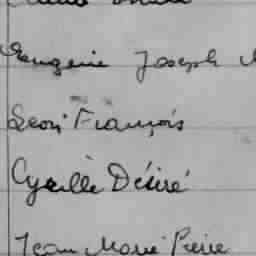 Eugenie Joseph
Leon François
Cyrille Désiré
Jean Marie Pierre